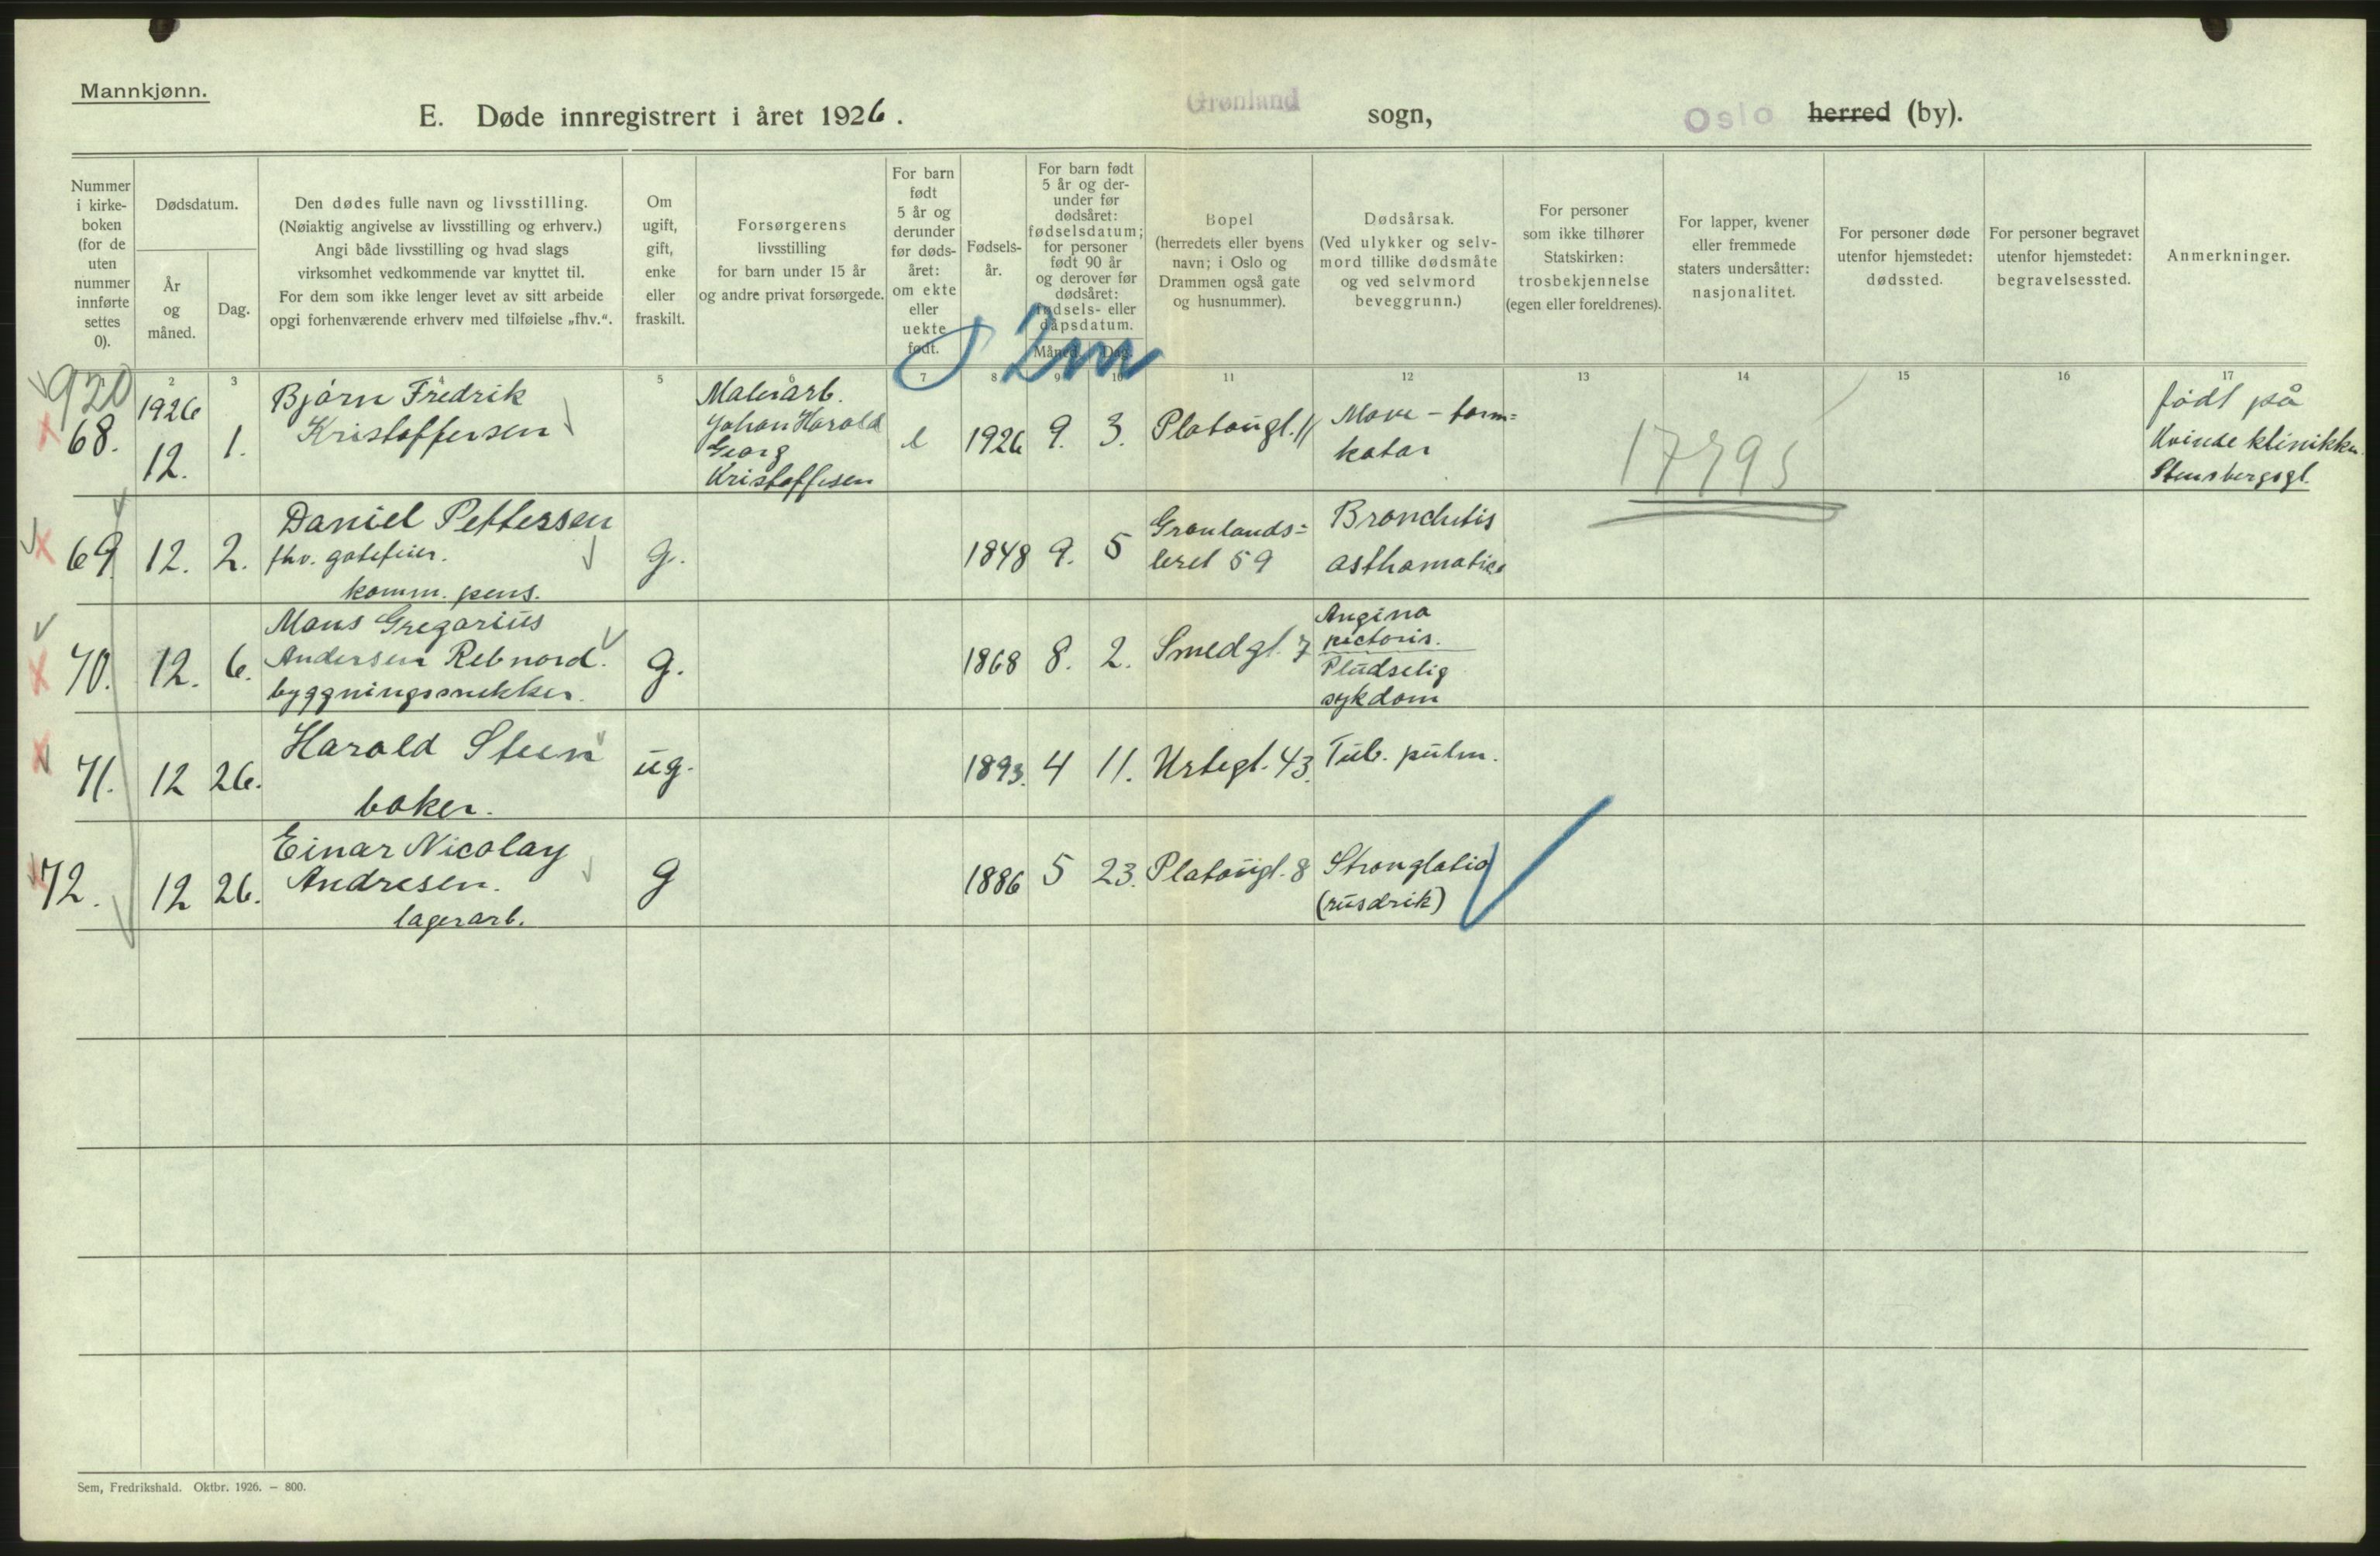 Mannkjønn.
E. Døde innregistrert i året 1926.
Grønland sogn,
Oslo herred (by).
Nummer i kirke- boken (for de uten nummer innførte settes 0).
Dødsdatum.
År og måned.
Dag.
Den dødes fulle navn og livsstilling.
(Nøiaktig angivelse av livsstilling og erhverv.)
Angi både livsstilling og hvad slags
virksomhet vedkommende var knyttet til.
For dem som ikke lenger levet av sitt arbeide
opgi forhenværende erhverv med tilføielse „fhv.“.
Om ugift, gift, enke eller fraskilt.
Forsørgerens
livsstilling
for barn under 15 år
og andre privat forsørgede.
For barn født 5 år og derunder før døds- året: om ekte eller uekte født.
Fødsels- år.
For barn født 5 år og der- under før dødsåret: fødselsdatum; for personer født 90 år og derover før dødsåret: fødsels- eller dåpsdatum.
Måned. Dag.
Bopel
(herredets eller byens
navn; i Oslo og
Drammen også gate
og husnummer).
Dødsårsak.
(Ved ulykker og selv-
mord tillike dødsmåte
og ved selvmord
beveggrunn.)
For personer
som ikke tilhører
Statskirken:
trosbekjennelse
(egen eller foreldrenes).
For lapper, kvener
eller fremmede
staters undersåtter:
nasjonalitet.
For personer døde
utenfor hjemstedet:
dødssted.
For personer begravet
utenfor hjemstedet:
begravelsessted.
Anmerkninger.
2 3 5 6 7 8 9 10 11 12 13 14 15 16 17
2m
920
68. 1926 12. 1. Bjørn Fredrik
Kristoffersen
Malerarb.
Johan Harald
Georg
Kristoffersen
e 1926 9. 3. Platougt. 11
Mave-tarm=
katar
17795
født på
Kvindeklinikken
Stensbergsgt.
69. 12. 2. Daniel Pettersen
fhv. gatefeier.
komm. pens.
g. 1848 9. 5 Grønlands=
leret 59
Bronchitis
asthamatica
70. 12. 6. Mons Gregorius
Andersen Rebnord.
byggningssnekker.
g. 1868 8. 2. Smedgt. 7
Angina
pectoris.
Pludselig
sykdom
71. 12 26. Harald Steen
baker.
ug. 1893. 4 11. Urtegt. 43. Tub. pulm.
72. 12 26. Einar Nicolay
Andresen.
lagerarb.
g 1886 5 23. Platougt. 8 Stranglatio
(rusdrik)
Sem, Fredrikshald. Oktbr. 1926. – 800.